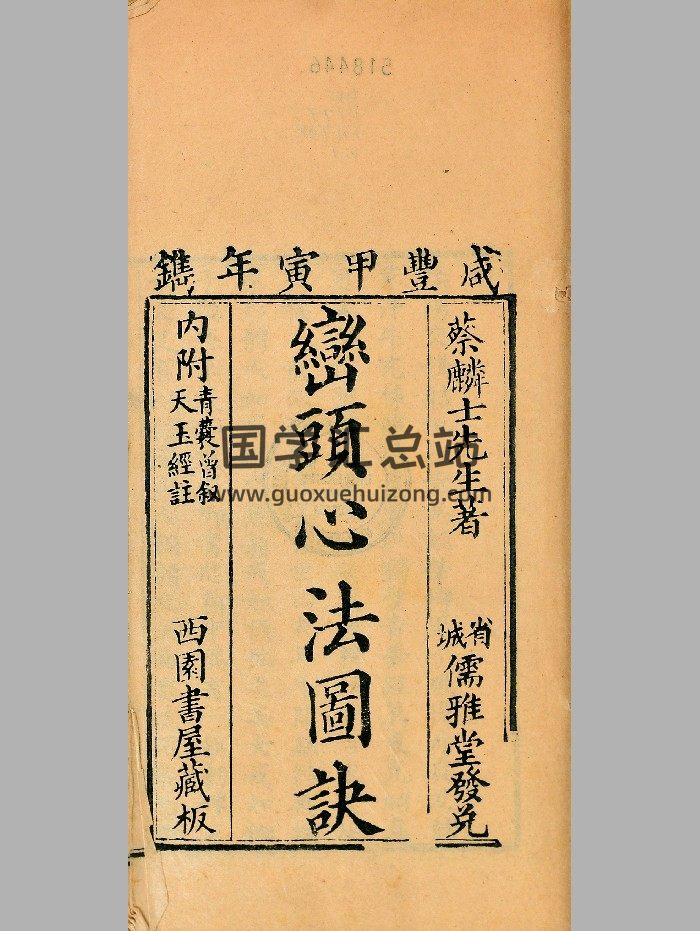 518446
咸豐甲寅年鐫
蔡麟士先生著
省城儒雅堂發兌
巒頭心法圖訣
內附青囊曾叙
天玉經註
西園書屋藏板
国学汇总站
www.guoxuehuizong.com